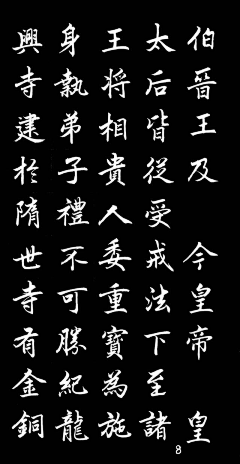 伯晉王及 今皇帝 皇
太后皆從受戒法下至諸
王将相貴人委重寳為施
身執弟子禮不可勝紀龍
興寺建於隋世寺有金銅
8